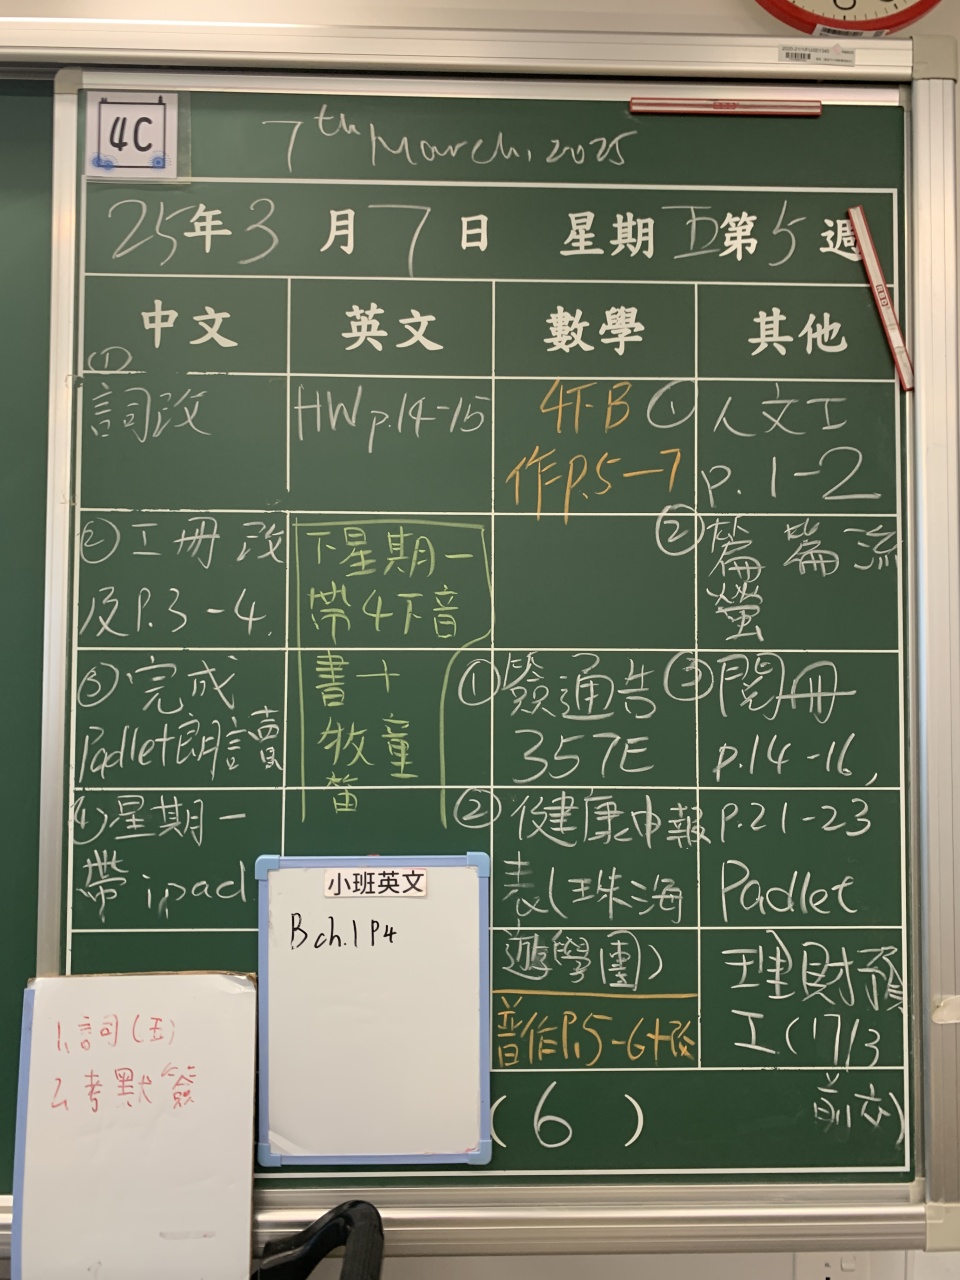 4C
7th March, 2025
25年3月7日 星期五第5週
中文
英文
數學
其他
①
詞改
②工冊改
及P.3-4.
③完成
Padlet朗讀
④星期一
帶ipad
HW p.14-15
下星期一
帶4下音
書+
牧童
笛
4下B
作P.5-7
①簽通告
357E
②健康申報
表(珠海
遊學團)
普作P.5-6+改
①人文工
p.1-2
②篇篇流
螢
③閱冊
p.14-16,
p.21-23
Padlet
理財預
工(17/3
前交)
(6)
小班英文
B ch.1 P4
1.詞(五)
2.考默簽